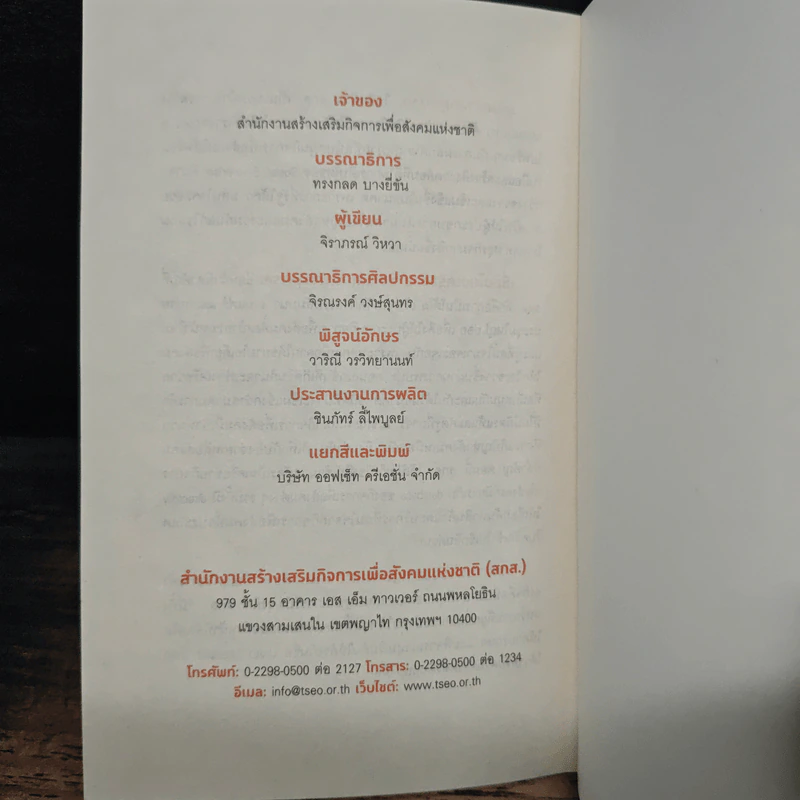 เจ้าของ
สำนักงานสร้างเสริมกิจการเพื่อสังคมแห่งชาติ
บรรณาธิการ
ทรงกลด บางยี่ขัน
ผู้เขียน
จิราภรณ์ วิหวา
บรรณาธิการศิลปกรรม
จิรณรงค์ วงษ์สุนทร
พิสูจน์อักษร
วาริณี วรวิทยานนท์
ประสานงานการผลิต
ชินภัทร์ ลี้ไพบูลย์
แยกสีและพิมพ์
บริษัท ออฟเซ็ท ครีเอชั่น จำกัด
สำนักงานสร้างเสริมกิจการเพื่อสังคมแห่งชาติ (สกส.)
979 ชั้น 15 อาคาร เอส เอ็ม ทาวเวอร์ ถนนพหลโยธิน
แขวงสามเสนใน เขตพญาไท กรุงเทพฯ 10400
โทรศัพท์: 0-2298-0500 ต่อ 2127 โทรสาร: 0-2298-0500 ต่อ 1234
อีเมล: info@tseo.or.th เว็บไซต์: www.tseo.or.th